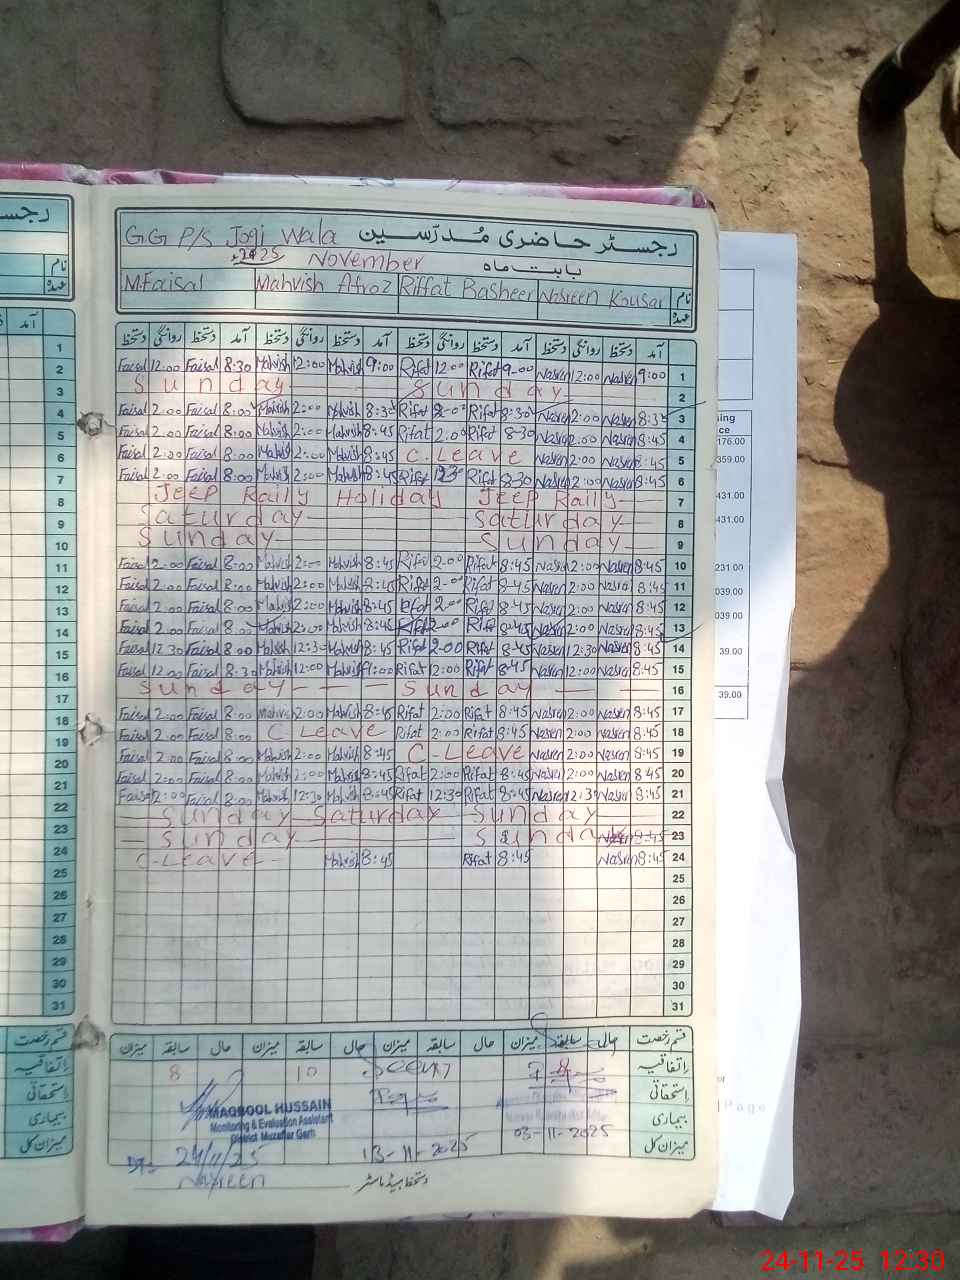 G.G P/S Jogi Wala رجسٹر حاضری مُدرّسین
2025 November بابت ماہ
M.Faisal Mahvish Afroz Riffat Basheer Nasreen Kousar نام عہدہ
دستخط روانگی دستخط آمد دستخط روانگی دستخط آمد دستخط روانگی دستخط آمد دستخط روانگی دستخط آمد
Faisal 12.00 Faisal 8:30 Mahvish 12:00 Mahvish 9:00 Rifat 12.00 Rifat 9.00 Nasreen 12:00 Nasreen 9:00 1
Sunday Sunday 2
Faisal 2.00 Faisal 8:00 Mahvish 2:00 Mahvish 8:30 Rifat 2.00 Rifat 8:30 Nasreen 2:00 Nasreen 8:3 3
Faisal 2.00 Faisal 8:00 Mahvish 2:00 Mahvish 8:45 Rifat 2.00 Rifat 8-30 Nasreen 2.00 Nasreen 8:45 4
Faisal 2:00 Faisal 8:00 Mahvish 2:00 Mahvish 8:45 C.Leave Nasreen 2:00 Nasreen 8:45 5
Faisal 2:00 Faisal 8:00 Mahvish 2:00 Mahvish 8:45 Rifat Rifat 8-30 Nasreen 2:00 Nasreen 8:45 6
Jeep Rally Holiday Jeep Rally 7
Saturday Saturday 8
Sunday Sunday 9
Faisal 2.00 Faisal 8:00 Mahvish 2:00 Mahvish 8:45 Rifat 2.00 Rifat 8:45 Nasreen 2:00 Nasreen 8:45 10
Faisal 2:00 Faisal 8:00 Mahvish 2:00 Mahvish 8:45 Rifat 2.00 Rifat 8-45 Nasreen 2:00 Nasreen 8:45 11
Faisal 2.00 Faisal 8:00 Mahvish 2:00 Mahvish 8:45 Rifat 2.00 Rifat 8-45 Nasreen 2:00 Nasreen 8:45 12
Faisal 2.00 Faisal 8:00 Mahvish 2:00 Mahvish 8:45 Rifat 2.00 Rifat 8-45 Nasreen 2:00 Nasreen 8:45 13
Faisal 12.30 Faisal 8.00 Mahvish 12:30 Mahvish 8:45 Rifat 2.00 Rifat 8:45 Nasreen 12:30 Nasreen 8:45 14
Faisal 12:00 Faisal 8:30 Mahvish 12:00 Mahvish 9:00 Rifat 12.00 Rifat 8-45 Nasreen 12:00 Nasreen 8:45 15
Sunday Sunday 16
Faisal 2:00 Faisal 8:00 Mahvish 2:00 Mahvish 8:45 Rifat 2:00 Rifat 8:45 Nasreen 2:00 Nasreen 8:45 17
Faisal 2.00 Faisal 8:00 C-Leave Rifat 2:00 Rifat 8:45 Nasreen 2:00 Nasreen 8:45 18
Faisal 2:00 Faisal 8:00 Mahvish 2:00 Mahvish 8:45 C-Leave Nasreen 2:00 Nasreen 8:45 19
Faisal 2:00 Faisal 8:00 Mahvish 2:00 Mahvish 8:45 Rifat 2:00 Rifat 8:45 Nasreen 2:00 Nasreen 8 45 20
Faisal 2:00 Faisal 8:00 Mahvish 12:30 Mahvish 8:45 Rifat 12:30 Rifat 8:45 Nasreen 12:30 Nasreen 8:45 21
Sunday Saturday Sunday 22
Sunday Sunday 8:45 23
C-Leave Mahvish 8:45 Rifat 8:45 Nasreen 8:45 24
25
26
27
28
29
30
31
میزان سابقہ حال میزان سابقہ حال میزان سابقہ حال میزان سابقہ حال قسم رخصت
8 10 Seen 7 8 اتفاقیہ
استحقاقی
MAQBOOL HUSSAIN
Monitoring & Evaluation Assistant
District Muzaffar Garh
بیماری
03-11-2025
Dt: 24/11/25 13-11-2025 میزان کل
Nasreen دستخط ہیڈ ماسٹر
رجس
نام
عہدہ
آمد
1
2
3
4
5
6
7
8
9
10
11
12
13
14
15
16
17
18
19
20
21
22
23
24
25
26
27
28
29
30
31
قسم رخصت
اتفاقیہ
استحقاقی
بیماری
میزان کل
176.00
359.00
431.00
431.00
231.00
039.00
039.00
39.00
39.00
Page
24-11-25 12:30